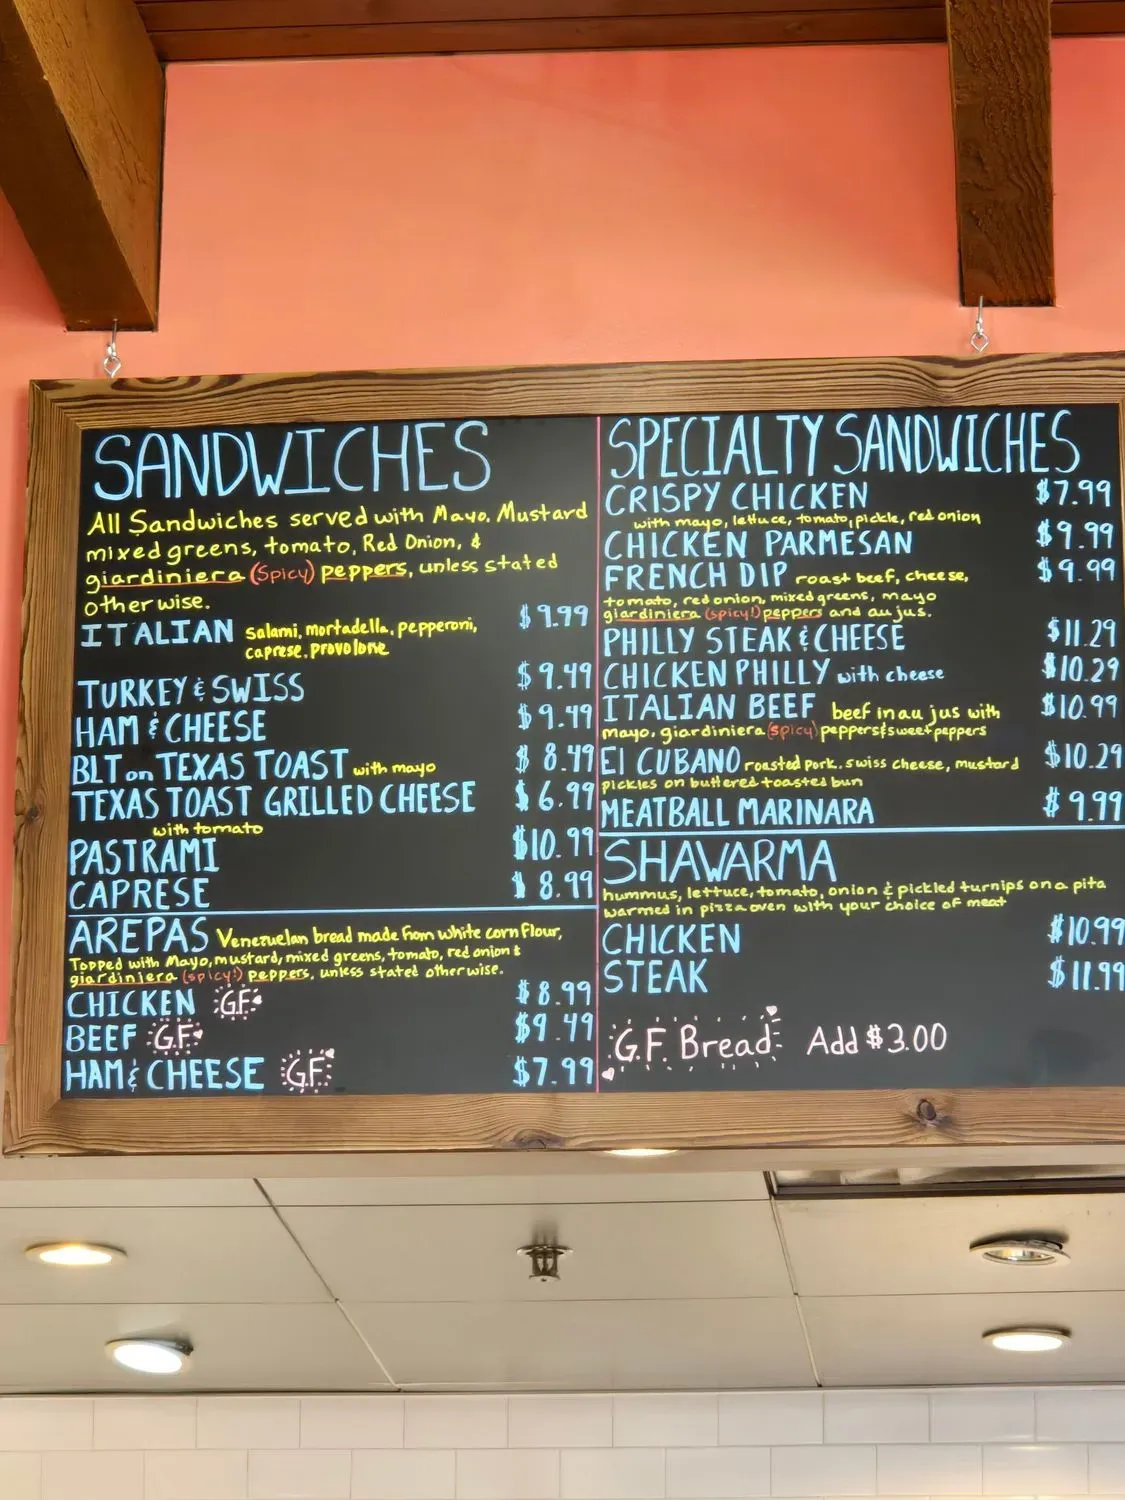 SANDWICHES
All Sandwiches served with Mayo. Mustard
mixed greens, tomato, Red Onion, &
giardiniera (Spicy) peppers, unless stated
otherwise.
ITALIAN salami, mortadella, pepperoni, $9.99
caprese, provolone
TURKEY & SWISS $9.49
HAM & CHEESE $9.49
BLT on TEXAS TOAST with mayo $8.49
TEXAS TOAST GRILLED CHEESE $6.99
with tomato
PASTRAMI $10.99
CAPRESE $8.99
AREPAS Venezuelan bread made from white corn flour,
Topped with Mayo, mustard, mixed greens, tomato, red onion &
giardiniera (spicy!) peppers, unless stated otherwise.
CHICKEN G.F. $8.99
BEEF G.F. $9.49
HAM & CHEESE G.F. $7.99
SPECIALTY SANDWICHES
CRISPY CHICKEN $7.99
with mayo, lettuce, tomato, pickle, red onion
CHICKEN PARMESAN $9.99
FRENCH DIP roast beef, cheese, $9.99
tomato, red onion, mixed greens, mayo
giardiniera (spicy!) peppers and au jus.
PHILLY STEAK & CHEESE $11.29
CHICKEN PHILLY with cheese $10.29
ITALIAN BEEF beef in au jus with $10.99
mayo, giardiniera (spicy) peppers & sweet peppers
El CUBANO roasted pork, swiss cheese, mustard $10.29
pickles on buttered toasted bun
MEATBALL MARINARA $9.99
SHAWARMA
hummus, lettuce, tomato, onion & pickled turnips on a pita
warmed in pizza oven with your choice of meat
CHICKEN $10.99
STEAK $11.99
G.F. Bread Add $3.00